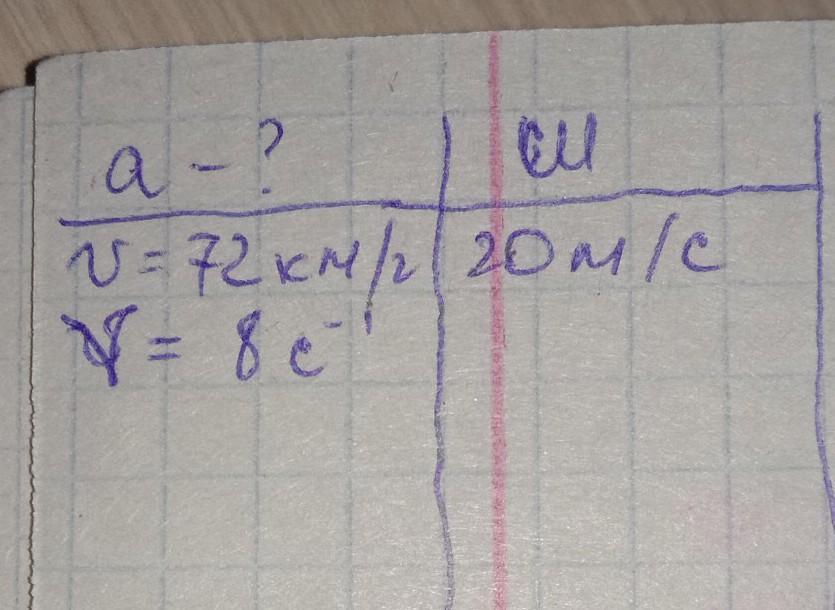 a - ?
СИ
v = 72 км/ч
20 м/с
γ = 8 с⁻¹